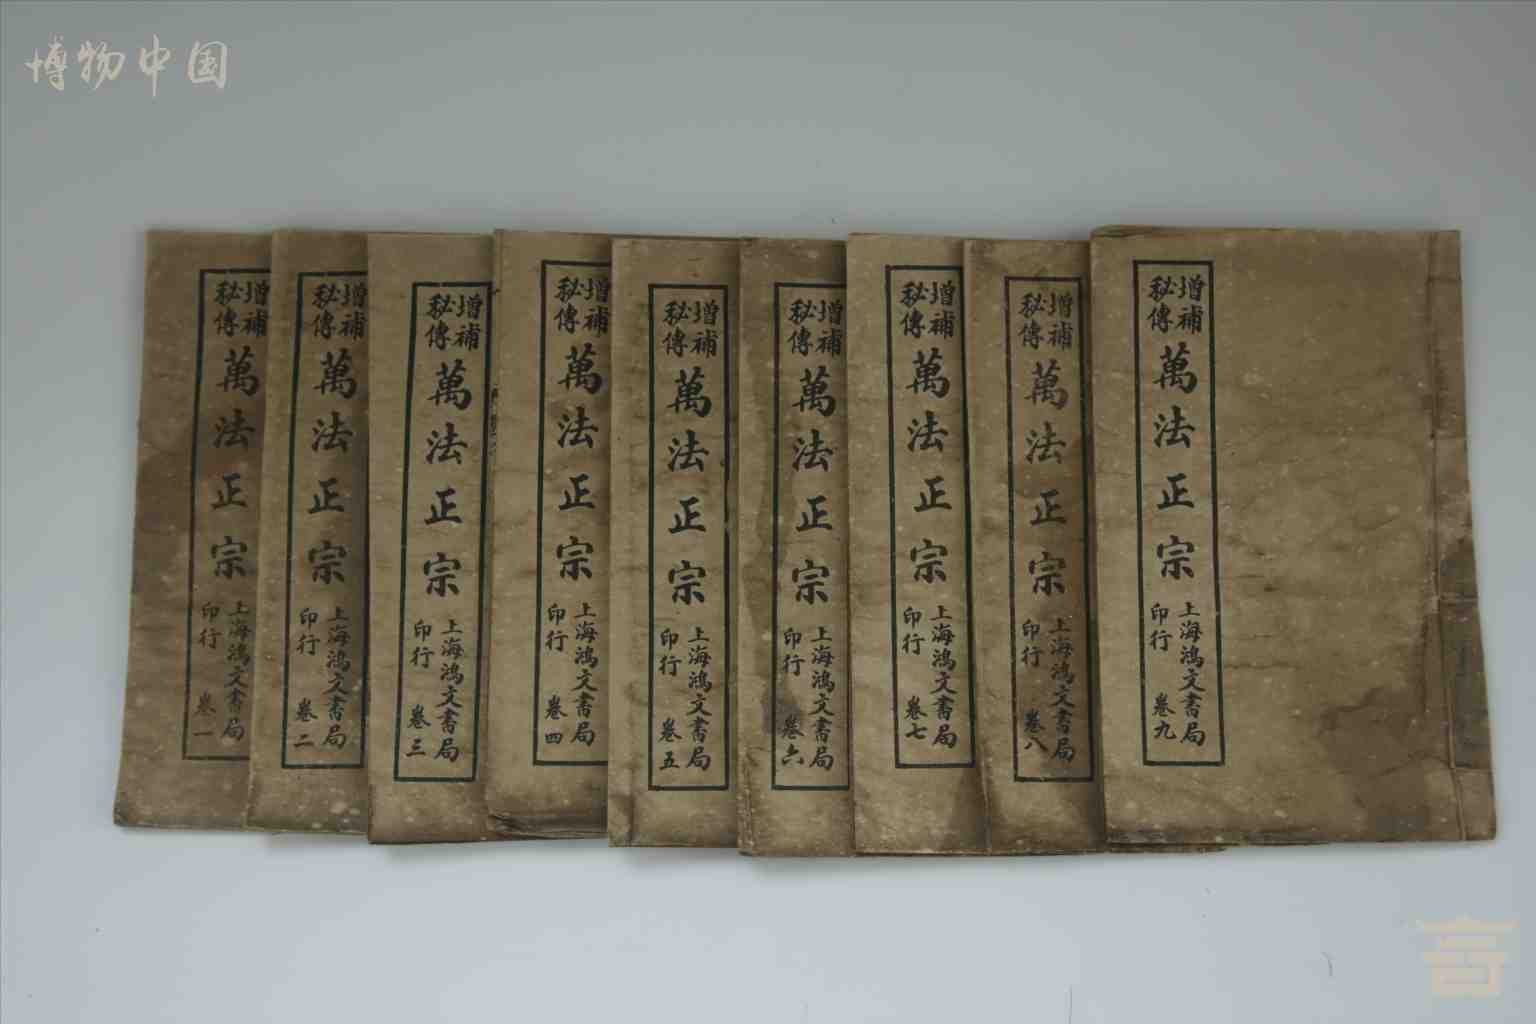 博物中国
增補
秘傳
萬法正宗
上海鴻文書局
印行
卷一
增補
秘傳
萬法正宗
上海鴻文書局
印行
卷二
增補
秘傳
萬法正宗
上海鴻文書局
印行
卷三
增補
秘傳
萬法正宗
上海鴻文書局
印行
卷四
增補
秘傳
萬法正宗
上海鴻文書局
印行
卷五
增補
秘傳
萬法正宗
上海鴻文書局
印行
卷六
增補
秘傳
萬法正宗
上海鴻文書局
印行
卷七
增補
秘傳
萬法正宗
上海鴻文書局
印行
卷八
增補
秘傳
萬法正宗
上海鴻文書局
印行
卷九